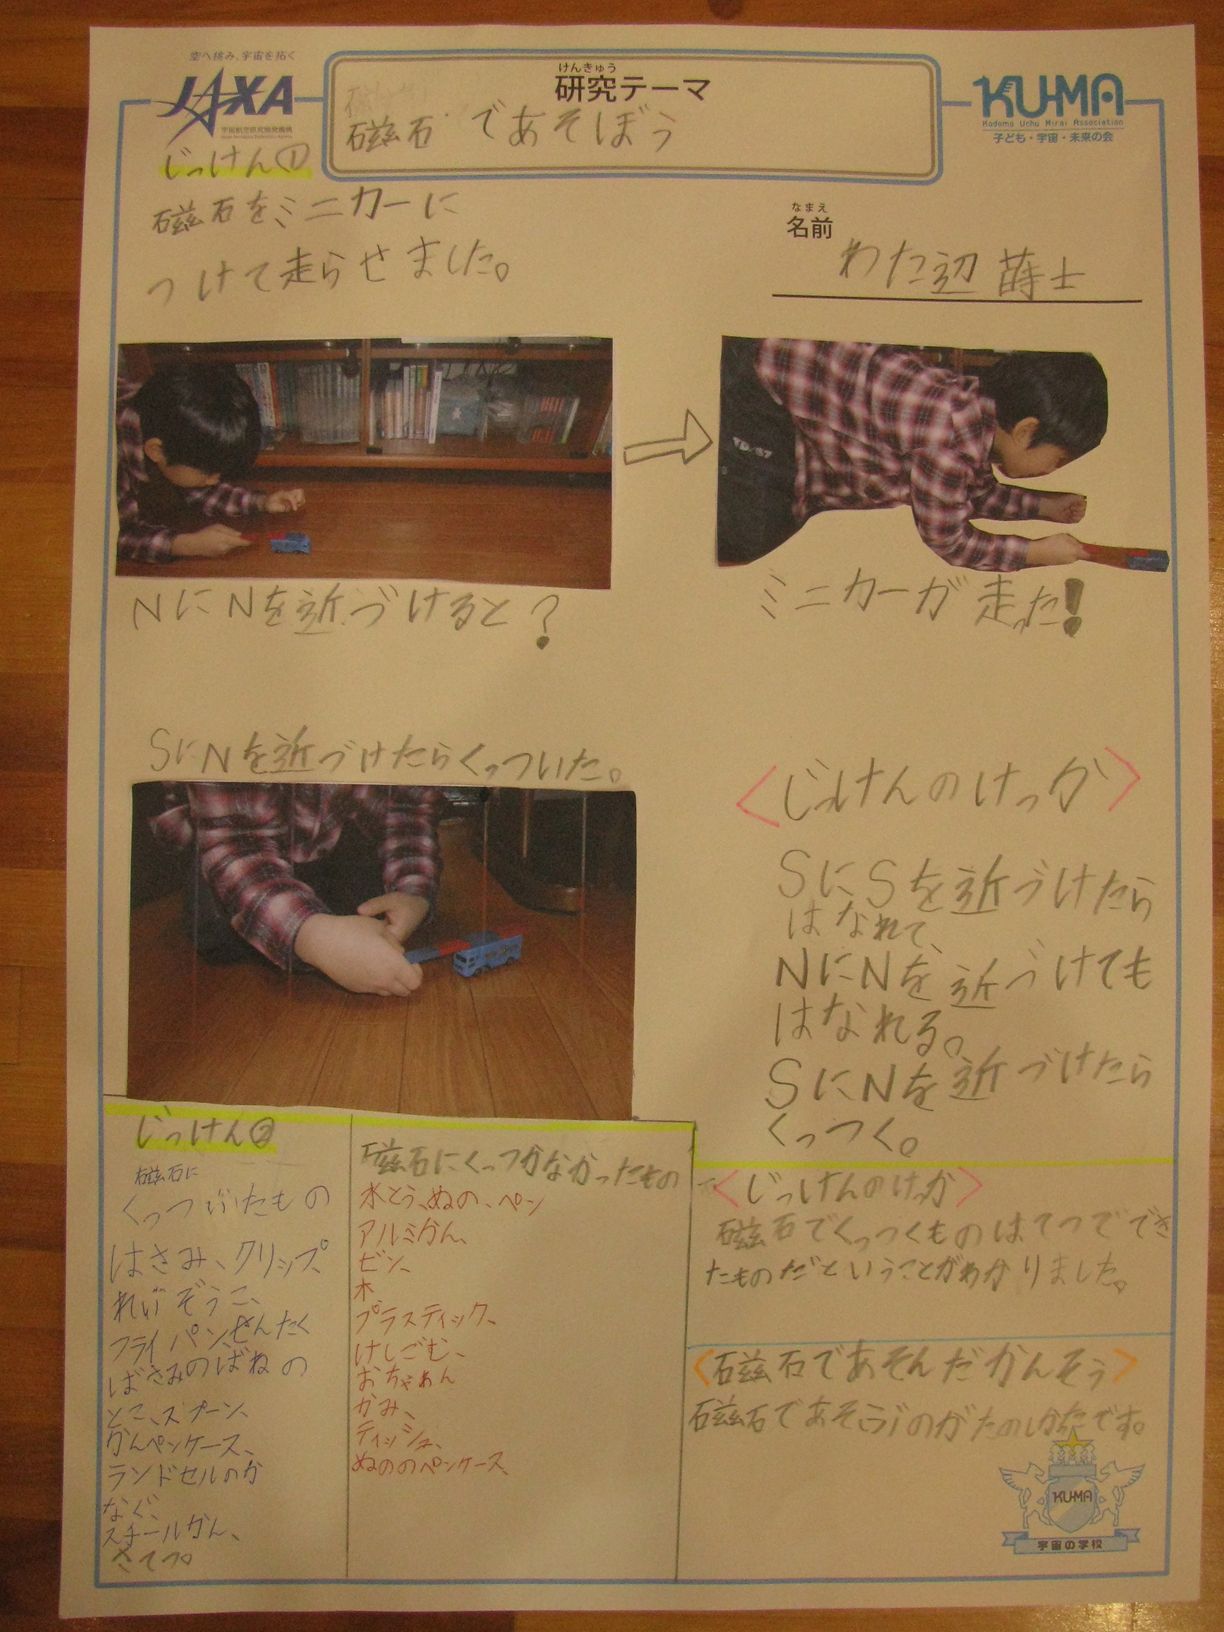 空へ挑み、宇宙を拓く
JAXA
宇宙航空研究開発機構
けんきゅう
研究テーマ
磁石であそぼう
KU-MA
Kodomo Uchu Mirai Association
子ども・宇宙・未来の会
じっけん①
磁石をミニカーに
つけて走らせました。
なまえ
名前
わた辺 蒔士
NにNを近づけると?
ミニカーが走った!
SにNを近づけたらくっついた。
<じっけんのけっか>
SにSを近づけたら
はなれて、
NにNを近づけても
はなれる。
SにNを近づけたら
くっつく。
じっけん②
磁石に
くっつぶたもの
はさみ、クリップ、
れいぞうこ、
フライパン、せんたく
ばさみのばねの
とこ、スプーン、
かんペンケース、
ランドセルのか
なぐ、
スチールかん、
さてつ。
磁石にくっつかなかったもの
水とう、ぬの、ペン
アルミかん、
ビン、
木
プラスティック、
けしごむ、
おちゃわん
かみ、
ティッシュ、
ぬののペンケース、
<じっけんのけっか>
磁石でくっつくものはてつででき
たものだということがわかりました。
<磁石であそんだかんそう>
磁石であそぶのがたのしかたです。
KU-MA
宇宙の学校